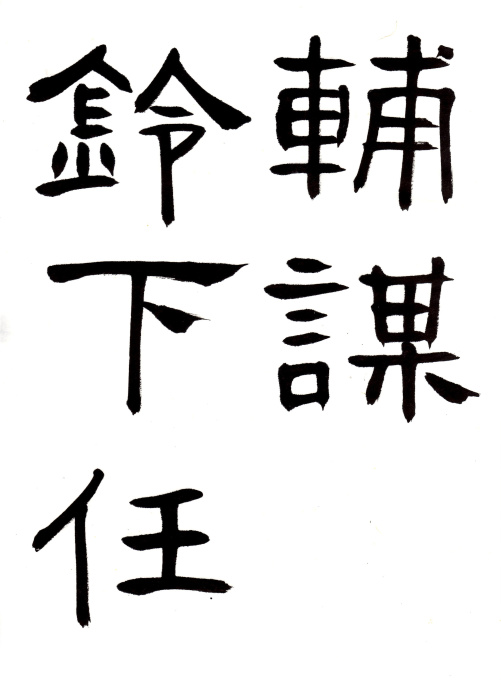 輔謀
鈴下任